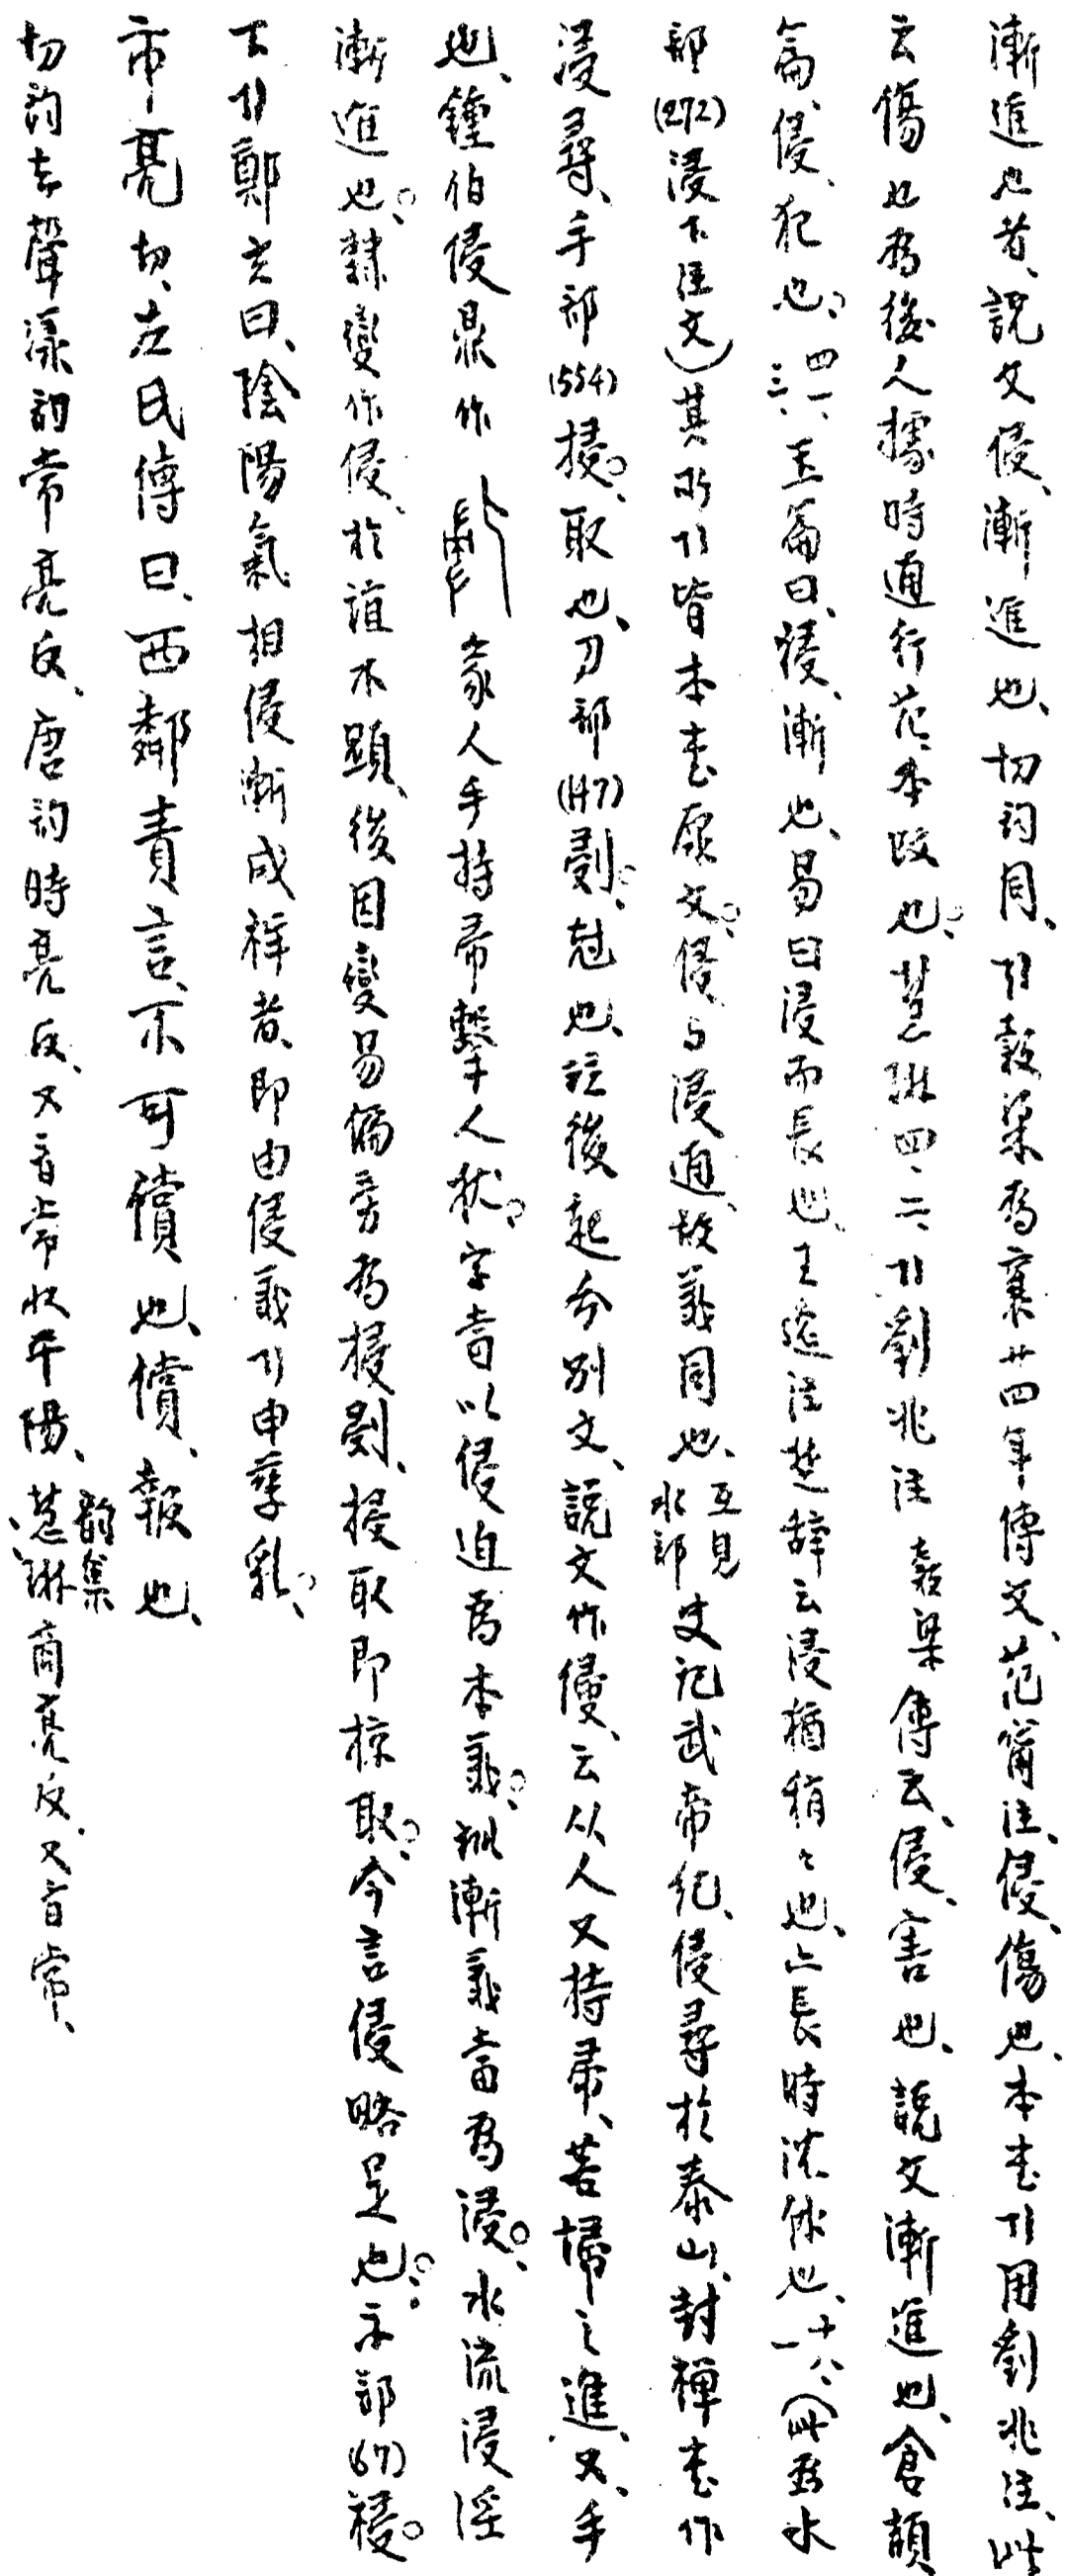 漸進也者、說文侵、漸進也、切韵同、引穀梁爲襄廿四年傳文、范甯注、侵、傷也、本書引用劉兆注、此
云傷也爲後人據時通行范本改也。慧琳四、二、引劉兆注穀梁傳云、侵、害也、說文漸進也、倉頡
篇、侵、犯也、四一、三、玉篇曰、侵、漸也、易曰浸而長也、王逸注楚辭云浸猶稍々也、亠長時沈休也、十八、一（此爲水
部(272)浸下注文）其所引皆本書原文。侵与浸通、故義同也、互見水部史記武帝紀、侵尋於泰山、封禪書作
浸尋、手部(554)㨲。取也、刀部(147)㓹。尅也、竝後起分別文、說文作侵、云从人又持帚、若埽之進、又、手
也、鐘伯侵鼎作 象人手持帚擊人狀。字當以侵迫爲本義。訓漸義當爲浸。水流浸淫
漸進也。隸變作侵、於誼不顯、後因變易偏旁爲㨲㓹、㨲取即掠取。今言侵略是也。示部(67)祲。
下引鄭玄曰、陰陽氣相侵漸成祥者、即由侵義引申孳乳。
市亮切、左氏傳曰、西鄰責言、不可償也、償、報也、
切韵去聲漾韵常亮反、唐韵時亮反、又音常收平陽、韵集、慧琳商亮反、又音常、